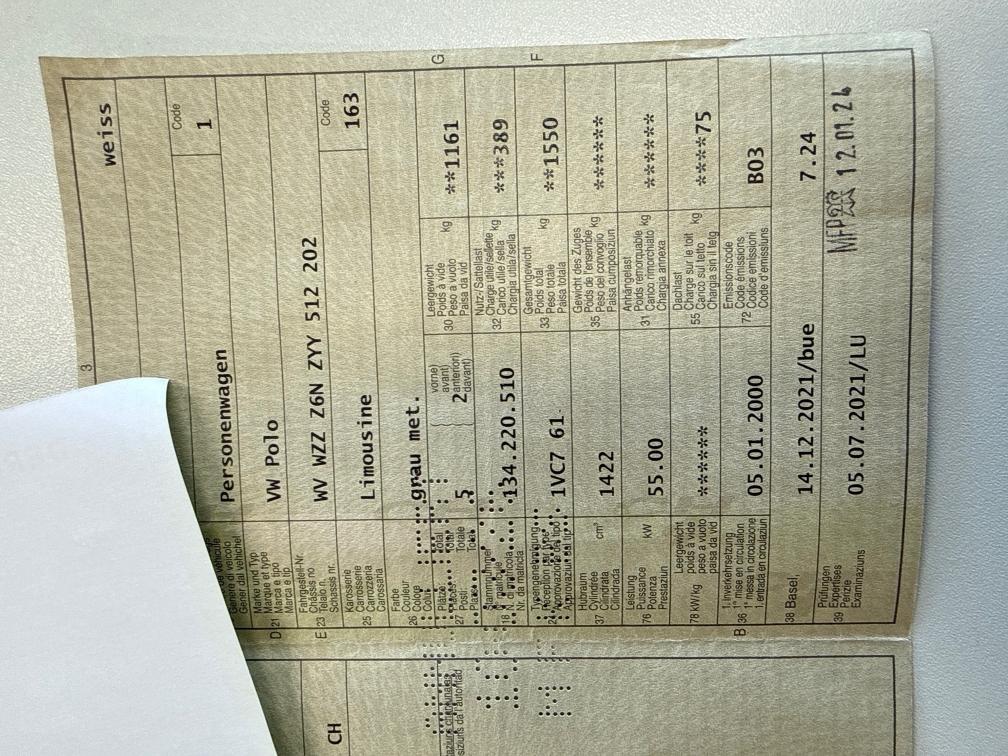 3
weiss
Code
1
Personenwagen
Genere di veicolo
Gener dal vehichel
D 21 Marke und Typ
Marque et type
Marca e tipo
Marca e tip
VW Polo
E 23 Fahrgestell-Nr.
Châssis no
Telaio n.
Schassis nr.
WV WZZ Z6N ZYY 512 202
25 Karosserie
Carrosserie
Carrozzeria
Carossaria
Limousine
Code
163
26 Farbe
Couleur
Colore
grau met.
27 Plätze
Places
Posti
Total
Total
Totale
Total
5
vorne)
avant)
2 anteriori)
davant)
30 Leergewicht
Poids à vide
Peso a vuoto
Paisa da vid
kg
**1161
G
18 Stammnummer
N. di matricola
Nr. da matricla
134.220.510
32 Nutz-/Sattellast
Charge utile/sellette
Carico utile/sella
Chargia utila/sella
kg
***389
24 Typengenehmigung
Réception par type
Approvazione del tipo
Approvaziun dal tip
1VC7 61
33 Gesamtgewicht
Poids total
Peso totale
Paisa totala
kg
**1550
F
37 Hubraum
Cylindrée
Cilindrata
Cilindrada
cm³
1422
35 Gewicht des Zuges
Poids de l'ensemble
Peso del convoglio
Paisa cumposiziun
kg
******
76 Leistung
Puissance
Potenza
Prestaziun
kW
55.00
31 Anhängelast
Poids remorquable
Carico rimorchiato
Chargia annexa
kg
******
78 kW/kg
Leergewicht
poids à vide
peso a vuoto
paisa da vid
******
55 Dachlast
Charge sur le toit
Carico sul tetto
Chargia sin il tetg
kg
****75
B 36 1. Inverkehrsetzung
1re mise en circulation
1a messa in circolazione
1. entrada en circulaziun
05.01.2000
72 Emissionscode
Code émissions
Codice emissioni
Code d'emissiuns
B03
38 Basel,
14.12.2021/bue
7.24
39 Prüfungen
Expertises
Perizie
Examinaziuns
05.07.2021/LU
MFP 12.01.24
CH